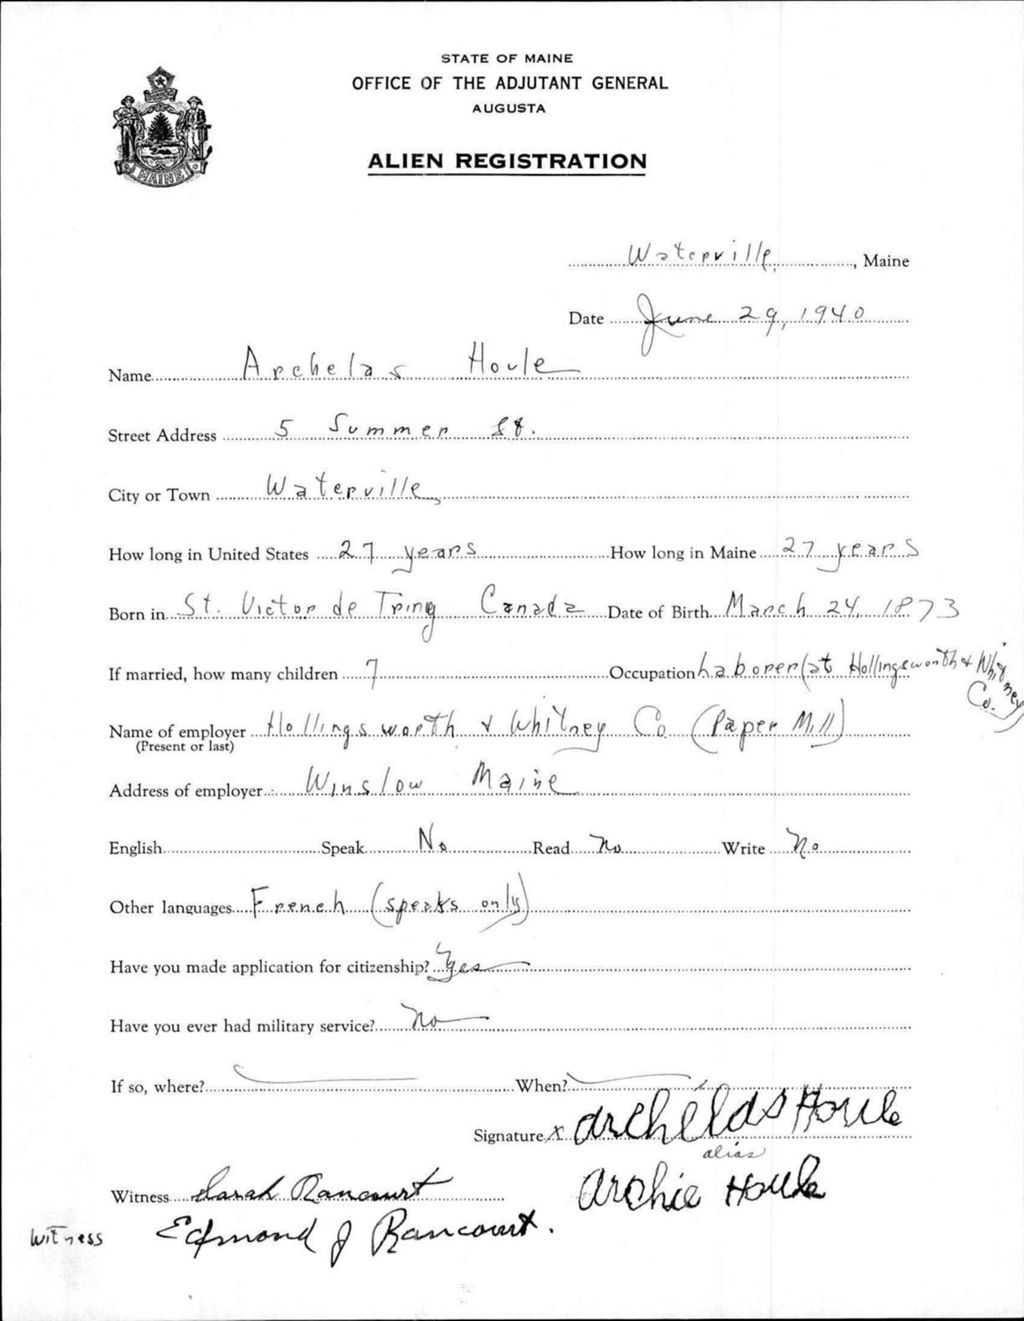 STATE OF MAINE
OFFICE OF THE ADJUTANT GENERAL
AUGUSTA
ALIEN REGISTRATION
MAINE
Waterville, Maine
Date June 29, 1940
Name Archelas Houle
Street Address 5 Summer St.
City or Town Waterville,
How long in United States 27 years How long in Maine 27 years
Born in St. Victor de Tring Canada Date of Birth March 24, 1873
If married, how many children 7 Occupation Laborer (at Hollingsworth & Whitney Co.)
Name of employer Hollingsworth & Whitney Co (Paper Mill)
(Present or last)
Address of employer Winslow Maine
English Speak No Read No Write No
Other languages French (speaks only)
Have you made application for citizenship? Yes
Have you ever had military service? No
If so, where? When?
Signature x Archelas Houle
alias
Witness Sarah Rancourt Archie Houle
Witness Edmond J Rancourt.